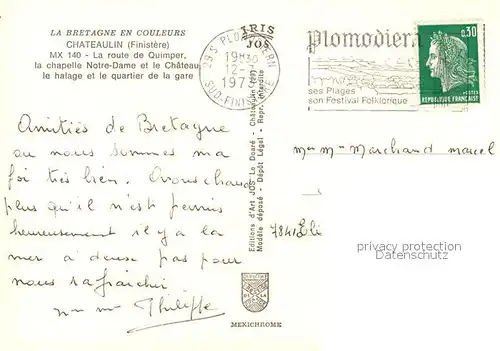 LA BRETAGNE EN COULEURS
CHATEAULIN (Finistère)
MX 140 - La route de Quimper,
la chapelle Notre-Dame et le Château
le halage et le quartier de la gare
Amitiés de Bretagne
ou nous sommes ma
foi très bien. Avons chaud
plus qu'il n'est permis
heureusement il y a la
mer à deux pas pour
nous rafraichir
Philippe
IRIS
JOS
Editions d'Art JOS Le Doaré - Châteaulin (29)
Modèle déposé - Dépôt Légal - Repr. Interdite
MEXICHROME
29 S PLOMODIERN
19H30
12-
197
SUD-FINISTERE
Plomodiern
ses Plages
son Festival Folklorique
0,30
POSTES
REPUBLIQUE FRANÇAISE
Mme M Marchand Marcel
privacy protection
watermark